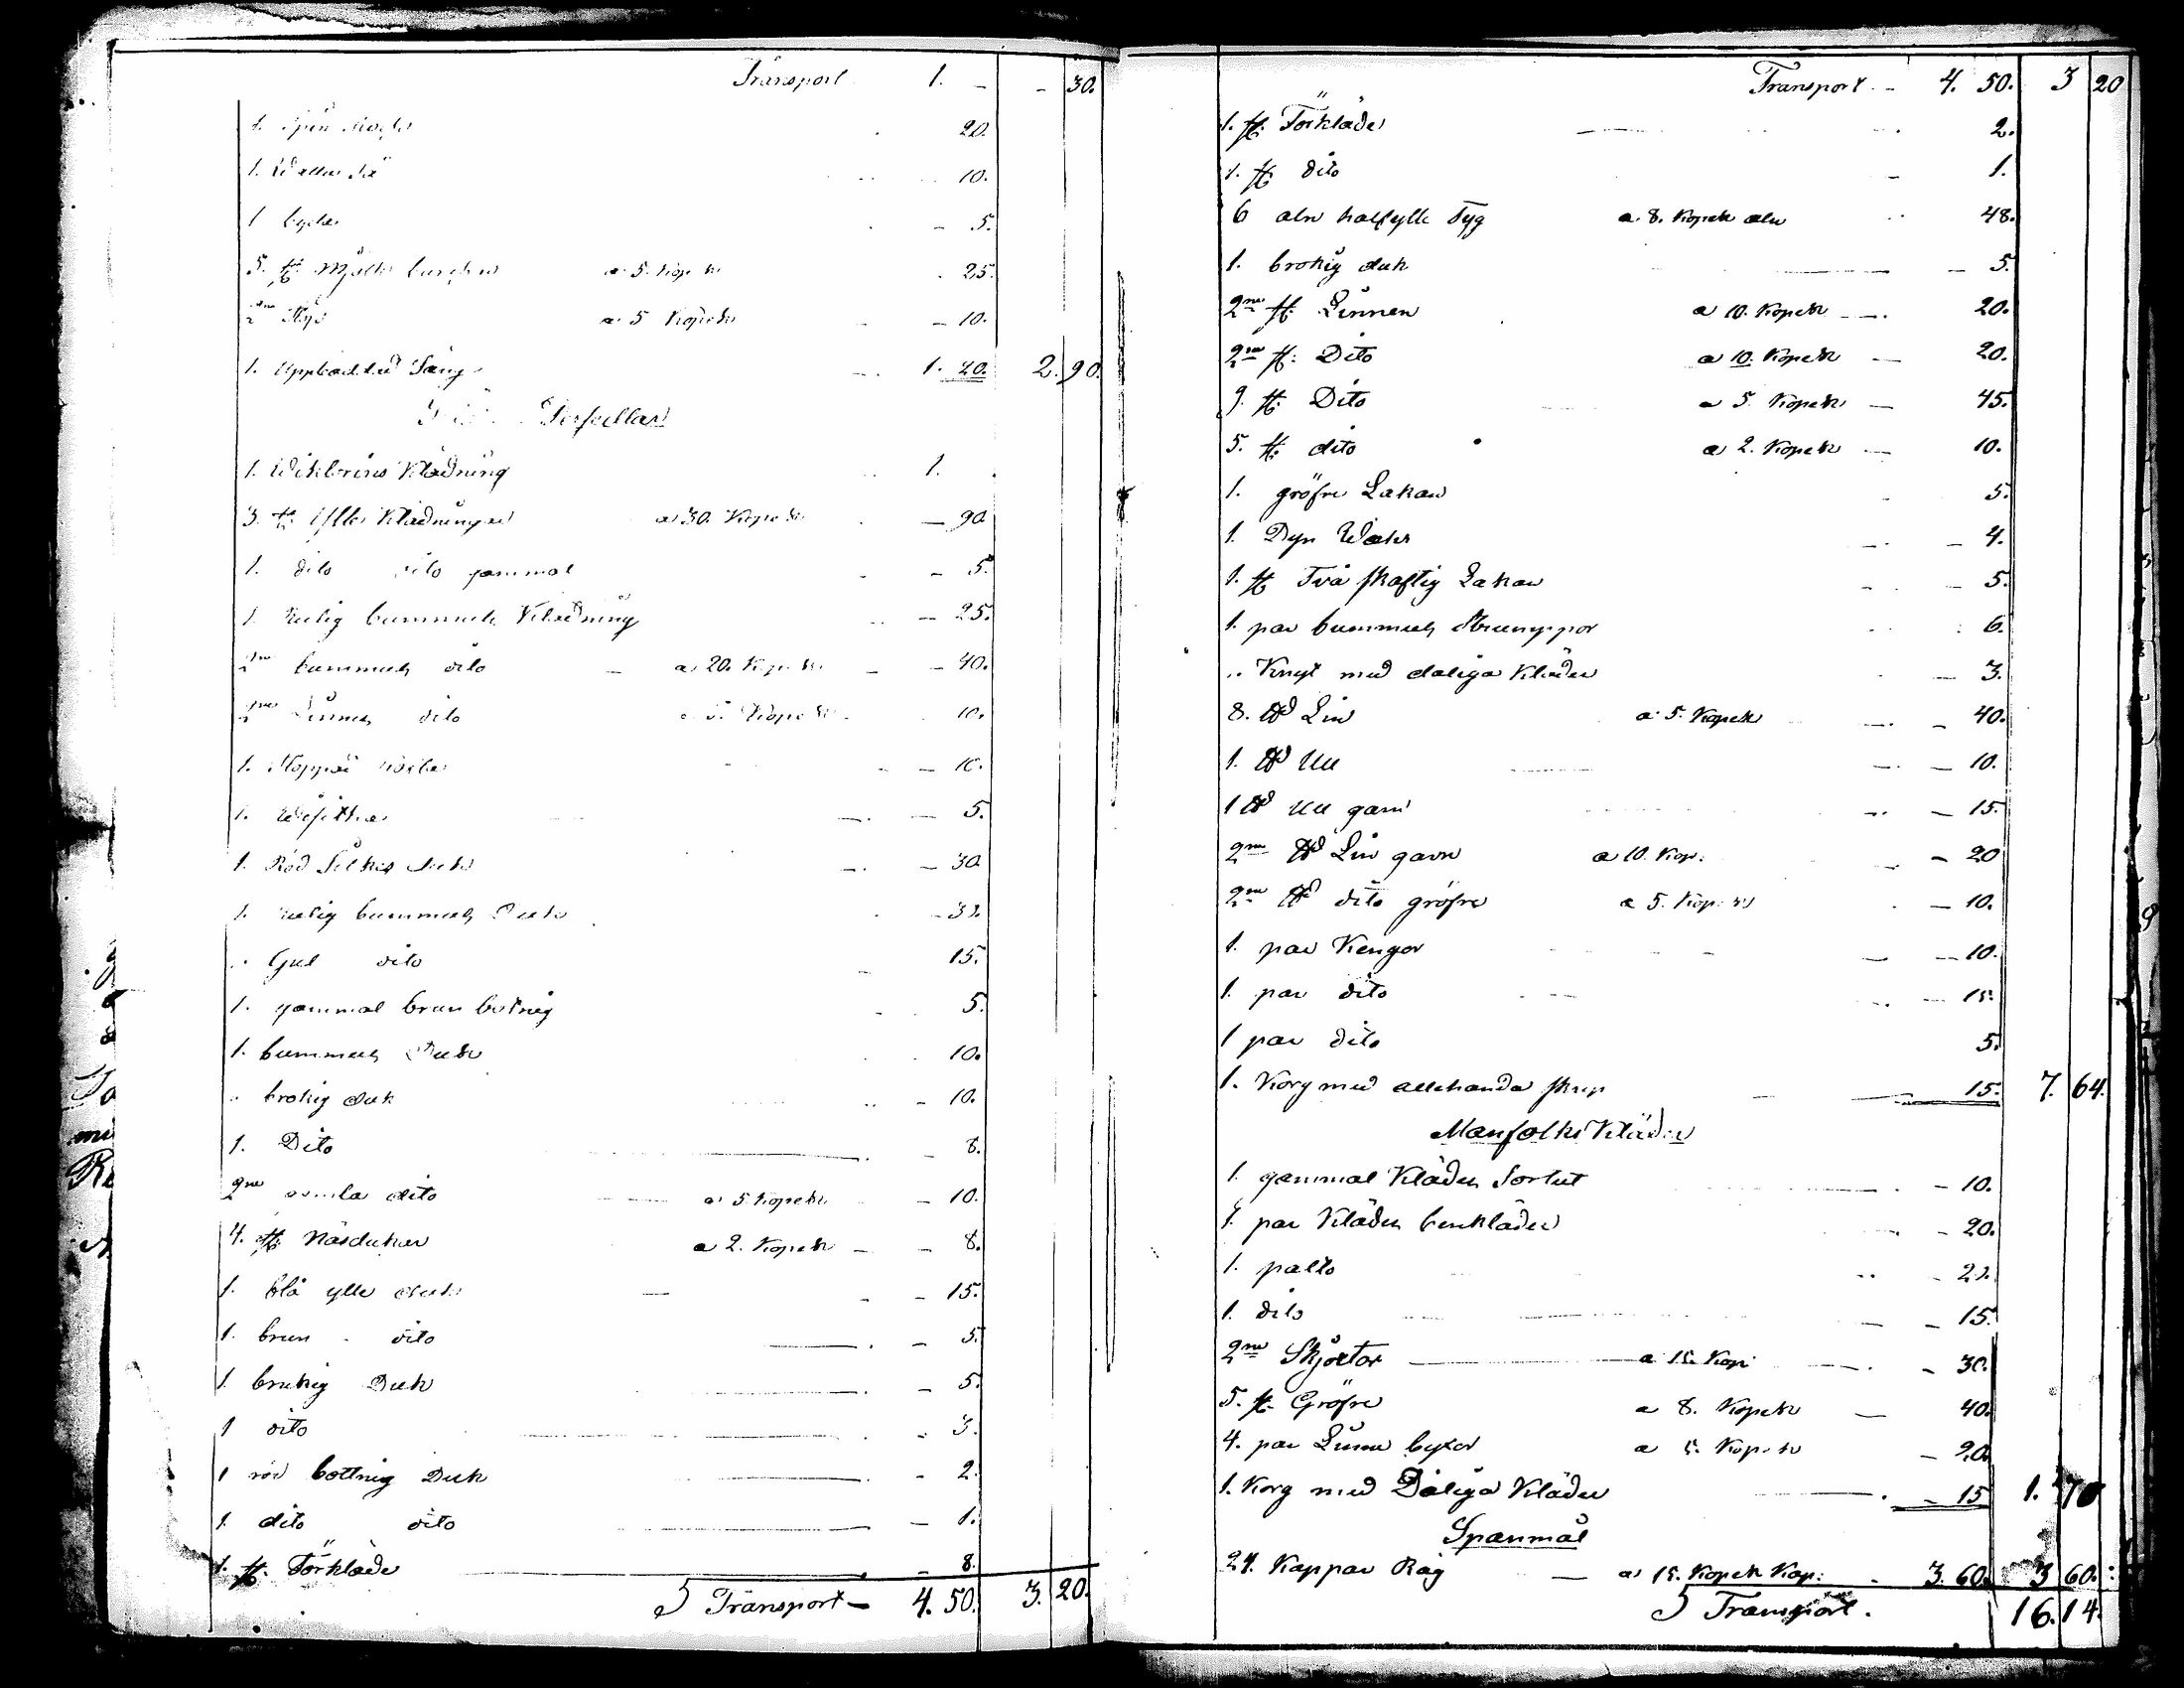 Transport 1. - - 30.
1. 20.
1. 10.
1 5.
5. st. Mjölk a 5. Kopek 25.
2ne a 5 Kopek - 10.
1. Uppbäddad Säng 1. 20. 2. 90.
Persedlar
1. Klädning 1.
3. st. Ylle Klädningar a 30. Kopek - 90
1. dito dito gammal - 5.
1. Rutig bummuls Klädning - 25.
2ne bummuls dito - a 20. Kopek - 40.
2ne Linnes dito a 5. Kopek 10.
1. - 10.
1. - 5.
1. Röd Silkes duk - 30
1. rutig bummuls Duk - 30.
" Gul dito 15.
1. gammal brun 5.
1. bummuls Duk 10.
" brokig duk - 10.
1. Dito - 8.
2ne gamla dito a 5 Kopek - 10.
4. st. Näsdukar a 2. Kopek - 8.
1. blå ylle duk - 15.
1. brun dito - 5.
1. brokig Duk - 5.
1 dito - 3.
1 röd bottnig Duk - 2.
1. dito dito - 1.
1. st. Förkläde - 8.
Transport - 4. 50. 3. 20.
Transport - 4. 50. 3 20
1. st. Förkläde 2.
1. st. dito - 1.
6 aln halfylle Tyg a 8. Kopek aln 48.
1. brokig duk - 5.
2ne st. Linnen a 10. Kopek 20.
2ne st. Dito a 10. Kopek 20.
9. st. Dito a 5. Kopek 45.
5. st. dito a 2. Kopek 10.
1. gröfre Lakan 5.
1. Dyn - 4.
1. st. Två skaftig Lakan - 5.
1. par bummuls Strumpor 6.
" Knyt med daliga Kläder - 3.
8. ℔ Lin a 5. Kopek - 40.
1. ℔ Ull - 10.
1 ℔ Ull garn - 15.
2ne ℔ Lin garn a 10. Kop. - 20
2ne ℔ dito gröfre a 5. Kopek - 10.
1. par Kengor - 10.
1. par dito - 15.
1 par dito 5.
1. Korg med allehanda skrap 15. 7. 64.
Manfolks Kläder
1. gammal Klädes Sortut - 10.
1. par Klädes benkläder - 20.
1. palto - 20.
1. dito - 15.
2ne Skjortor a 15. Kop. - 30.
5. st. Gröfre a 8. Kopek 40.
4. par Linne byxor a 5. Kopek - 20.
1. Korg med Dåliga Kläder - 15 1. 70
Spanmål
24. Kappar Råg a 15. Kopek Kap. 3. 60. 3 60.
Transport. 16. 14.